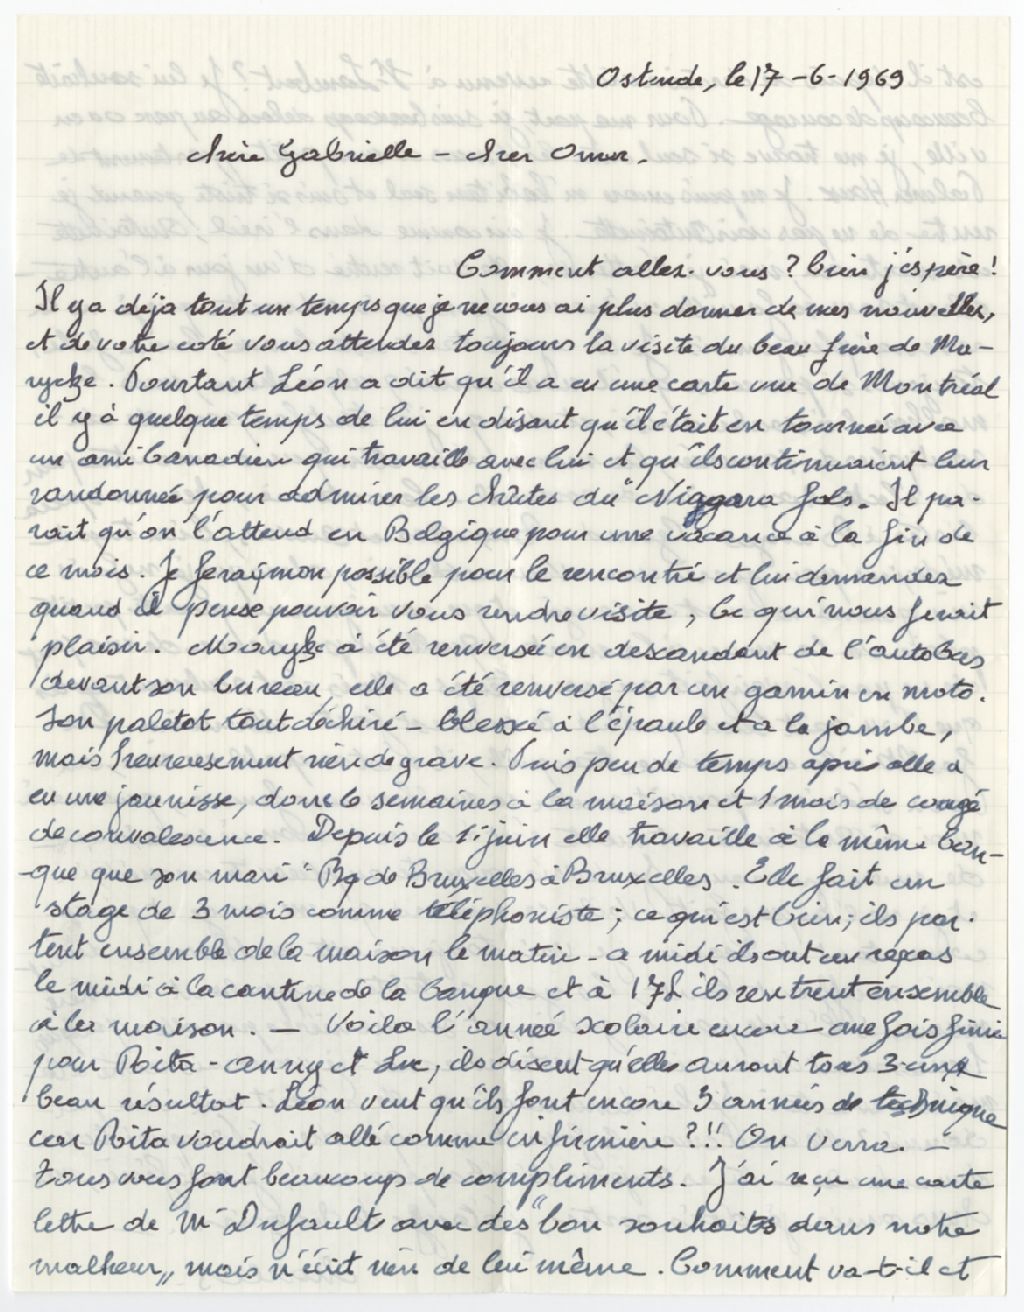 Ostende, le 17-6-1969
chère Gabrielle - cher Omer.
Comment allez-vous? bien j'espère!
Il y a déja tout un temps que je ne vous ai plus donner de mes nouvelles,
et de votre coté vous attendez toujours la visite du beau frère de Ma-
rycke. Pourtant Léon a dit qu'il a eu une carte vue de Montréal
il y à quelque temps de lui en disant qu'il était en tournée avec
un ami Canadien qui travaille avec lui et qu'ils continuaient leur
randonnée pour admirer les chûtes du "Niaggara fals. Il pa-
rait qu'on l'attend en Belgique pour une vacance à la fin de
ce mois. Je ferai mon possible pour le rencontré et lui demandez
quand il pense pouvoir vous rendre visite, ce qui nous ferait
plaisir. Marycke à été renversée en descendant de l'autobus
devant son bureau, elle a été renversé par un gamin en moto.
Son paletot tout déchiré - blessé à l'épaule et a la jambe,
mais heureusement rien de grave. Puis peu de temps après elle a
eu une jaunisse, donc 6 semaines à la maison et 1 mois de congé
de convalesence. Depuis le 1r juin elle travaille à la même ban-
-que que son mari "Bq de Bruxelles à Bruxelles. Elle fait un
stage de 3 mois comme téléphoniste; ce qui est bien; ils par-
tent ensemble de la maison le matin - a midi ils ont un repas
le midi à la cantine de la banque et à 17h ils rentrent ensemble
à la maison. - Voila l'année scolaire encore une fois finie
pour Rita - anny et Luc, ils disent qu'elles auront tous 3 un
beau résultat. Léon veut qu'ils font encore 3 années de technique
car Rita voudrait allé comme infirmière?!! On verra. -
Tous vous font beaucoup de compliments. J'ai reçu une carte
lettre de Mr Dufault avec des "bon souhaits dans notre
malheur,, mais n'écrit rien de lui même. Comment va-t-il et